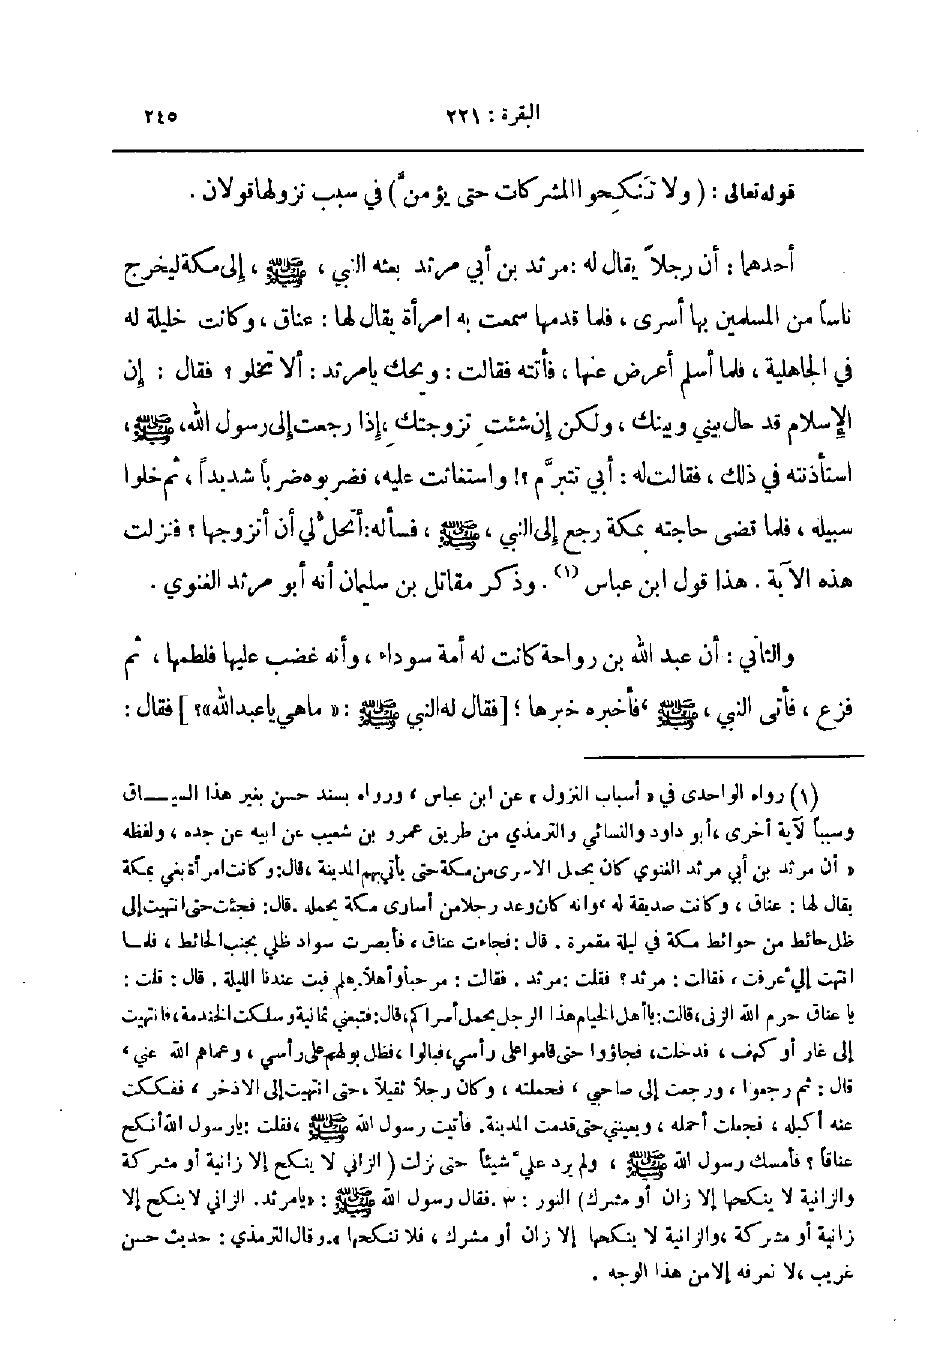 البقرة : ٢٢١ ٢٤٥
قوله تعالى : ( ولا تَنكِحوا المشركات حتى يؤمنَّ) في سبب نزولها قولان .
أحدهما : أن رجلاً يقال له : مرثد بن أبي مرثد بعثه النبي ، ﷺ ، إلى مكة ليخرج
ناساً من المسلمين بها أسرى ، فلما قدمها سمعت به امرأة يقال لها : عناق ، وكانت خليلة له
في الجاهلية ، فلما أسلم أعرض عنها ، فأتته فقالت : ويحك يا مرثد : ألا تخلو ؟ فقال : إن
الإسلام قد حال بيني وبينك ، ولكن إن شئت تزوجتك ، إذا رجعت إلى رسول الله، ﷺ ،
استأذنته في ذلك ، فقالت له : أبي تتبرَّم ؟! واستغاثت عليه، فضربوه ضرباً شديداً ، ثم خلوا
سبيله ، فلما قضى حاجته بمكة رجع إلى النبي ، ﷺ ، فسأله: أتحل لي أن أتزوجها ؟ فنزلت
هذه الآية . هذا قول ابن عباس (١) . وذكر مقاتل بن سليمان أنه أبو مرثد الغنوي .
والثاني : أن عبد الله بن رواحة كانت له أمة سوداء ، وأنه غضب عليها فلطمها ، ثم
فزع ، فأتى النبي ، ﷺ ، فأخبره خبرها ؛ [فقال له النبي ﷺ : « ما هي يا عبد الله»؟ ] فقال :
(١) رواه الواحدي في « أسباب النزول » عن ابن عباس ، ورواه بسند حسن بغير هذا السيـــاق
وسبباً لآية أخرى ، أبو داود والنسائي والترمذي من طريق عمرو بن شعيب عن ابيه عن جده ، ولفظه
« أن مرثد بن أبي مرثد الغنوي كان يحمل الاسرى من مكة حتى يأتي بهم المدينة ، قال: وكانت امرأة بغي بمكة
يقال لها : عناق ، وكانت صديقة له ، وانه كان وعد رجلا من أسارى مكة يحمله . قال: فجئت حتى انتهيت إلى
ظل حائط من حوائط مكة في ليلة مقمرة . قال : فجاءت عناق ، فأبصرت سواد ظلي بجنب الحائط ، فلمـا
انتهت إلي عرفت ، فقالت : مرثد ؟ فقلت : مرثد . فقالت : مرحباً وأهلاً. هلم فبت عندنا الليلة . قال : قلت :
يا عناق حرم الله الزنى، قالت: يا أهل الخيام هذا الرجل يحمل أسراكم، قال: فتبعني ثمانية وسلكت الخندمة، فانتهيت
إلى غار أو كهف ، فدخلت، فجاؤوا حتى قاموا على رأسي، فبالوا ، فظل بولهم على رأسي ، وعماهم الله عني ،
قال : ثم رجعوا ، ورجعت إلى صاحبي ، فحملته ، وكان رجلاً ثقيلاً ، حتى انتهيت إلى الاذخر ، ففككت
عنه أكبله ، فجعلت أحمله ، ويعيني حتى قدمت المدينة. فأتيت رسول الله ﷺ ، فقلت : يا رسول الله أنكح
عناقاً ؟ فأمسك رسول الله ﷺ ، ولم يرد علي شيئاً حتى نزلت ( الزاني لا ينكح إلا زانية أو مشركة
والزانية لا ينكحها إلا زان أو مشرك) النور : ٣ . فقال رسول الله ﷺ : «يا مرثد. الزاني لا ينكح إلا
زانية أو مشركة ، والزانية لا ينكحها إلا زان أو مشرك ، فلا تنكحها ». وقال الترمذي : حديث حسن
غريب ، لا نعرفه إلا من هذا الوجه .